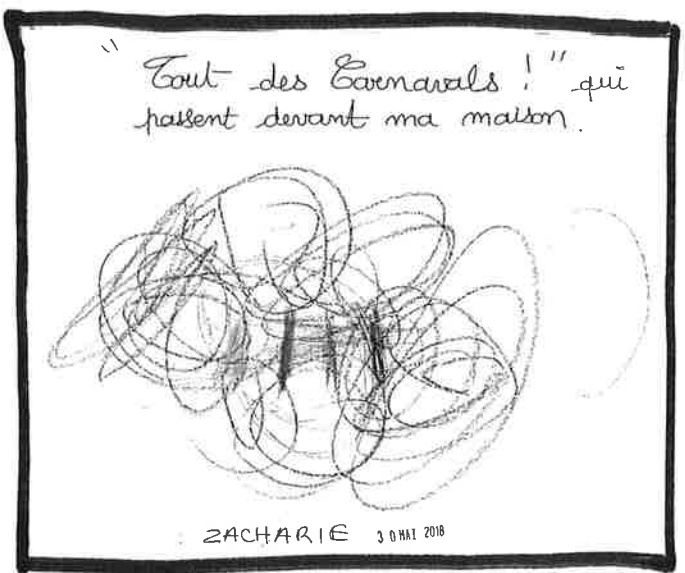 " Tout des Carnavals ! " qui
passent devant ma maison.
ZACHARIE 30 MAI 2018